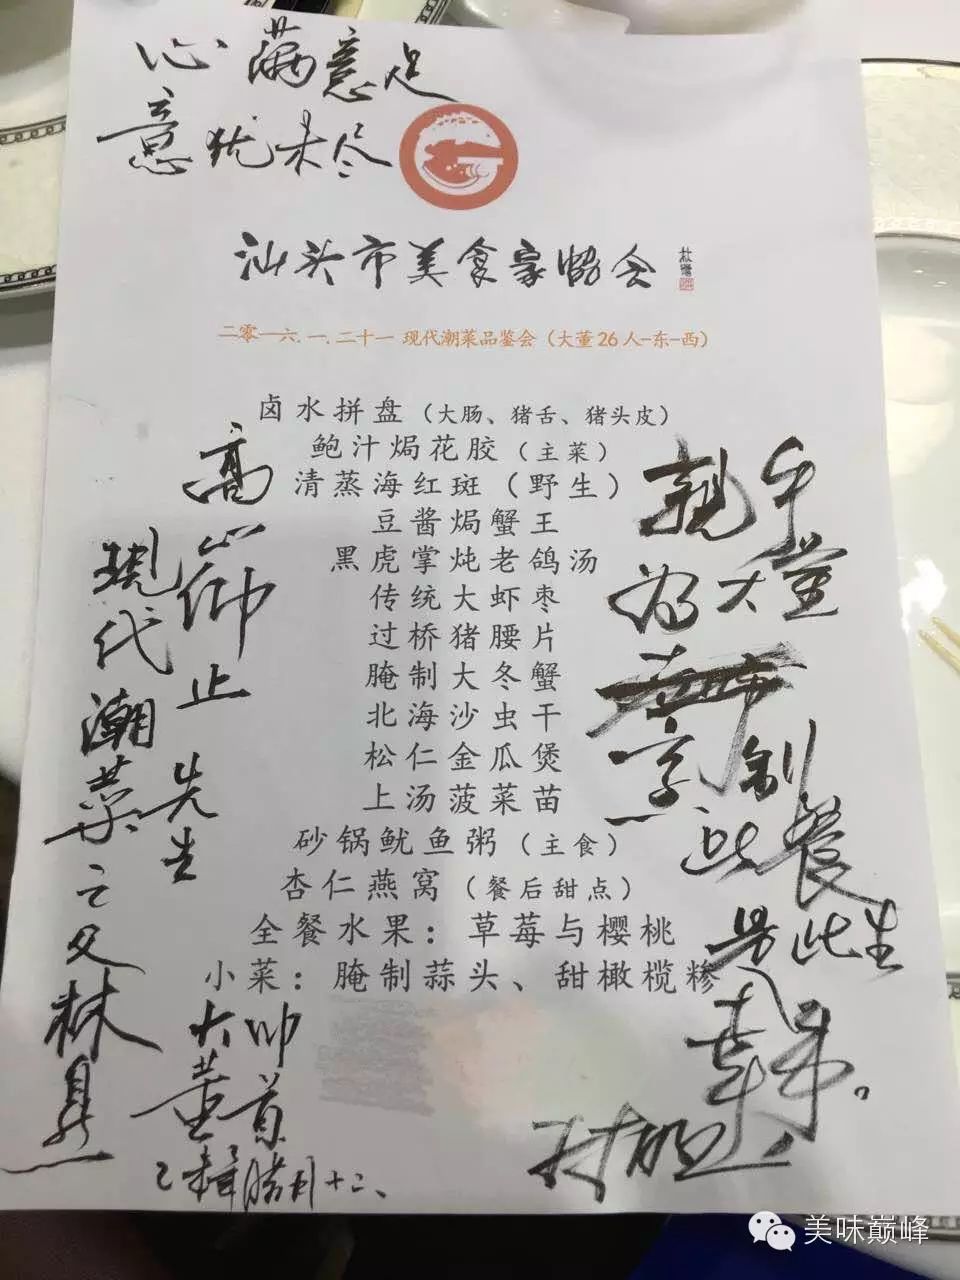 心满意足
意犹未尽
汕头市美食家协会
二零一六.一.二十一 现代潮菜品鉴会（大董26人-东-西）
卤水拼盘（大肠、猪舌、猪头皮）
鲍汁焗花胶（主菜）
清蒸海红斑（野生）
豆酱焗蟹王
黑虎掌炖老鸽汤
传统大虾枣
过桥猪腰片
腌制大冬蟹
北海沙虫干
松仁金瓜煲
上汤菠菜苗
砂锅鱿鱼粥（主食）
杏仁燕窝（餐后甜点）
全餐水果：草莓与樱桃
小菜：腌制蒜头、甜橄榄糁
高山仰止
现代潮菜之父林
先生
大董
腊月十二
亲手
为大董
烹制
此餐
此生
美味巅峰